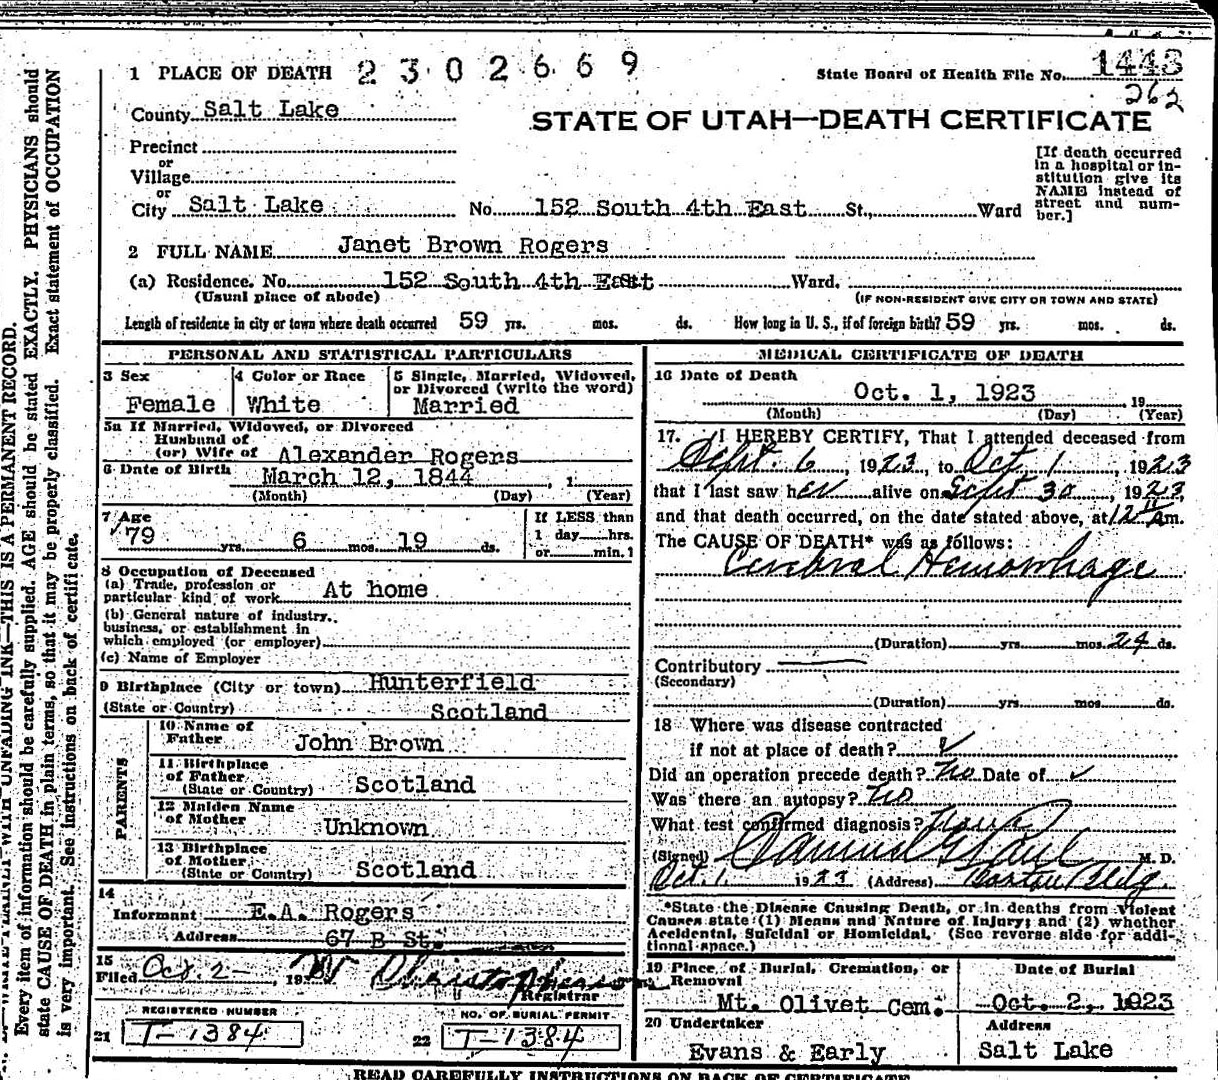 1 PLACE OF DEATH 2302669
State Board of Health File No. 1443
262
County Salt Lake
STATE OF UTAH—DEATH CERTIFICATE
Precinct
or
Village
or
City Salt Lake No. 152 South 4th East St., Ward
[If death occurred
in a hospital or in-
stitution give its
NAME instead of
street and num-
ber.]
2 FULL NAME Janet Brown Rogers
(a) Residence. No. 152 South 4th East Ward.
(Usual place of abode) (IF NON-RESIDENT GIVE CITY OR TOWN AND STATE)
Length of residence in city or town where death occurred 59 yrs. mos. ds. How long in U. S., if of foreign birth? 59 yrs. mos. ds.
PERSONAL AND STATISTICAL PARTICULARS
3 Sex
Female
4 Color or Race
White
5 Single, Married, Widowed,
or Divorced (write the word)
Married
5a If Married, Widowed, or Divorced
Husband of
(or) Wife of Alexander Rogers
6 Date of Birth March 12, 1844, 1
(Month) (Day) (Year)
7 Age
79 yrs. 6 mos. 19 ds.
If LESS than
1 day hrs.
or min.?
8 Occupation of Deceased
(a) Trade, profession or
particular kind of work At home
(b) General nature of industry,
business, or establishment in
which employed (or employer)
(c) Name of Employer
9 Birthplace (City or town) Hunterfield
(State or Country) Scotland
PARENTS
10 Name of
Father John Brown
11 Birthplace
of Father
(State or Country) Scotland
12 Maiden Name
of Mother Unknown
13 Birthplace
of Mother
(State or Country) Scotland
14
Informant E.A. Rogers
Address 67 B St.
15
Filed Oct. 2, 19
Registrar
REGISTERED NUMBER
21 T-1384
NO. OF BURIAL PERMIT
22 T-1384
MEDICAL CERTIFICATE OF DEATH
16 Date of Death
Oct. 1, 1923 19
(Month) (Day) (Year)
17. I HEREBY CERTIFY, That I attended deceased from
Sept. 6, 1923, to Oct. 1, 1923
that I last saw her alive on Sept 30, 1923,
and that death occurred, on the date stated above, at 12 m.
The CAUSE OF DEATH* was as follows:
Cerebral Hemorrhage
(Duration) yrs. mos. 24 ds.
Contributory
(Secondary)
(Duration) yrs. mos. ds.
18 Where was disease contracted
if not at place of death?
Did an operation precede death? No Date of
Was there an autopsy? No
What test confirmed diagnosis?
(Signed) Samuel G Paul M. D.
Oct. 1 1923 (Address) Boston Bldg.
*State the Disease Causing Death, or in deaths from Violent
Causes state (1) Means and Nature of Injury; and (2) whether
Accidental, Suicidal or Homicidal. (See reverse side for addi-
tional space.)
19 Place of Burial, Cremation, or
Removal
Mt. Olivet Cem.
Date of Burial
Oct. 2, 1923
20 Undertaker
Evans & Early
Address
Salt Lake
READ CAREFULLY INSTRUCTIONS ON BACK OF CERTIFICATE
THIS IS A PERMANENT RECORD.
Every item of information should be carefully supplied. AGE should be stated EXACTLY. PHYSICIANS should
state CAUSE OF DEATH in plain terms, so that it may be properly classified. Exact statement of OCCUPATION
is very important. See instructions on back of certificate.